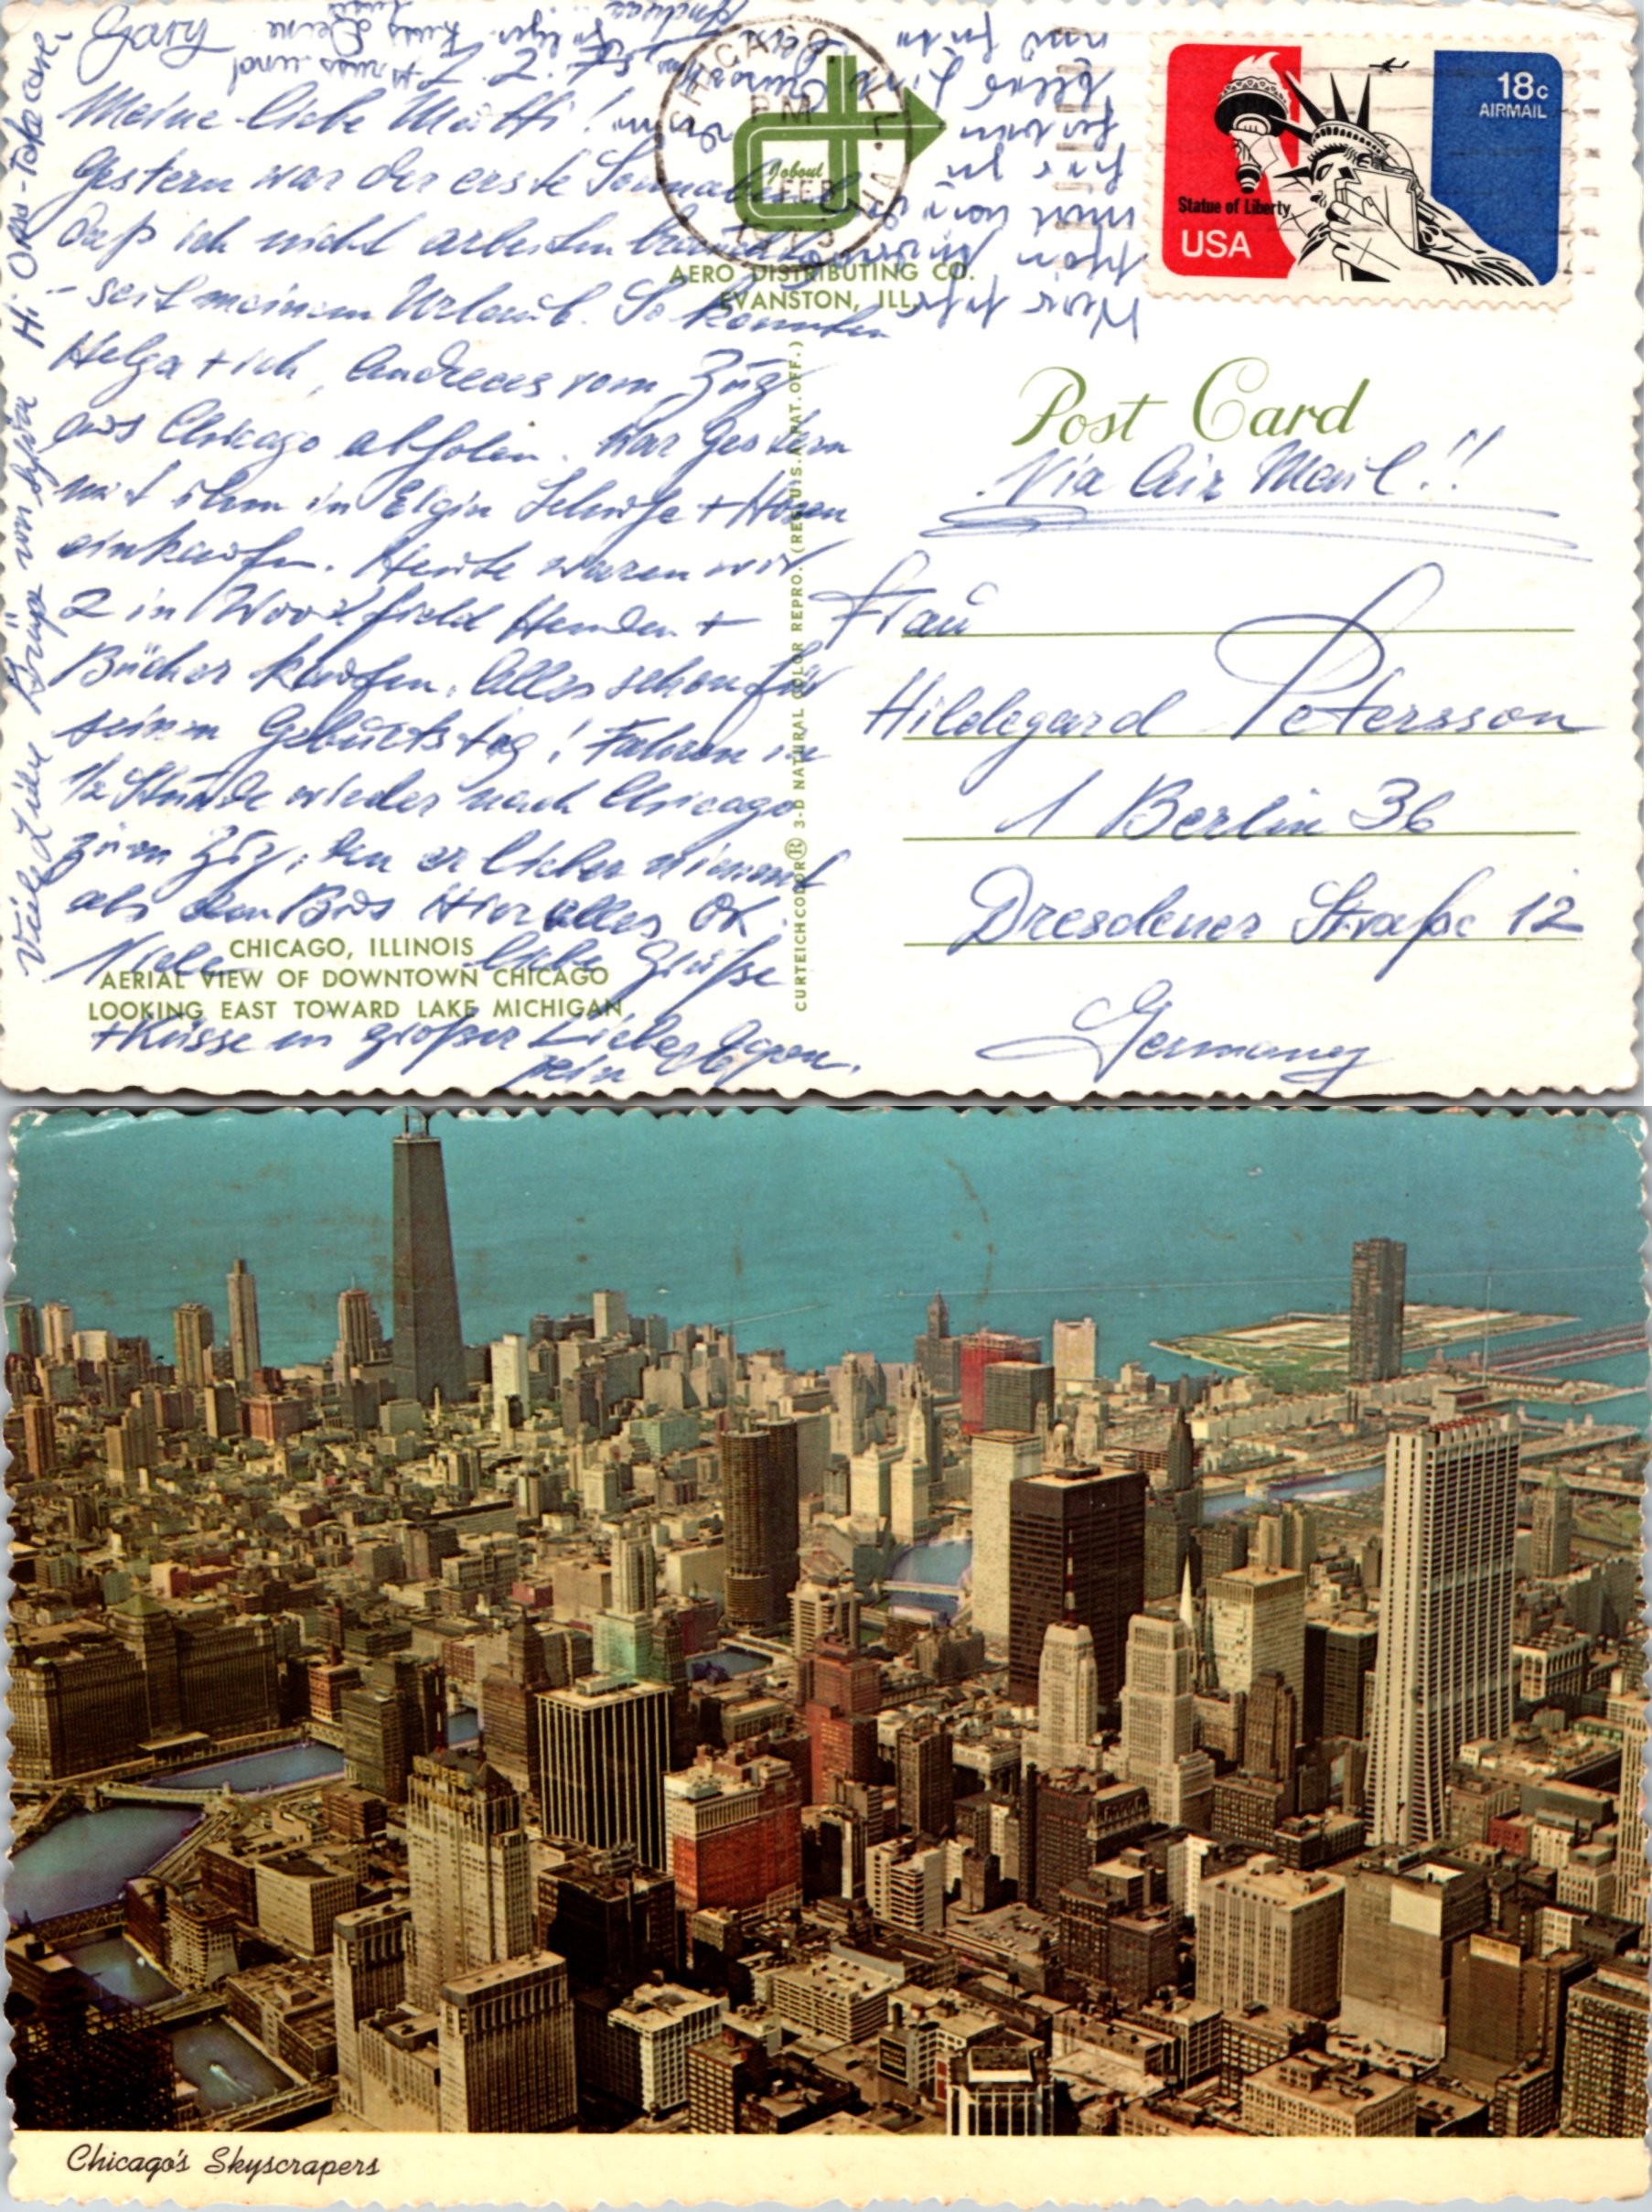 Gary
Hi Oma - Take care,
Viele Liebe Grüße von Sylvia
Meine liebe Mutti!
Gestern war der erste Sonnabend
daß ich nicht arbeiten brauchte
- seit meinem Urlaub. So konnten
Helga + ich, Andreas vom Zug
aus Chicago abholen. War gestern
mit ihm in Elgin Schuhe + Hosen
einkaufen. Heute waren wir
2 in Woodfield Hemden +
Bücher kaufen. Alles schon für
seinen Geburtstag! Fahren in
1/2 Stunde wieder nach Chicago
zum Zug, den er lieber nimmt
als den Bus. Hier alles OK.
Viele liebe Grüße
+ Küsse in großer Liebe
Dein Egon.
CHICAGO, ILLINOIS
AERIAL VIEW OF DOWNTOWN CHICAGO
LOOKING EAST TOWARD LAKE MICHIGAN
Joboul
AERO DISTRIBUTING CO.
EVANSTON, ILL.
CURTEICHCOLOR® 3-D NATURAL COLOR REPRO. (REG. U.S.A. PAT. OFF.)
CHICAGO, IL
PM
FEB
18c
AIRMAIL
Statue of Liberty
USA
Post Card
Via Air Mail!!
Frau
Hildegard Petersson
1 Berlin 36
Dresdener Straße 12
Germany
Chicago's Skyscrapers